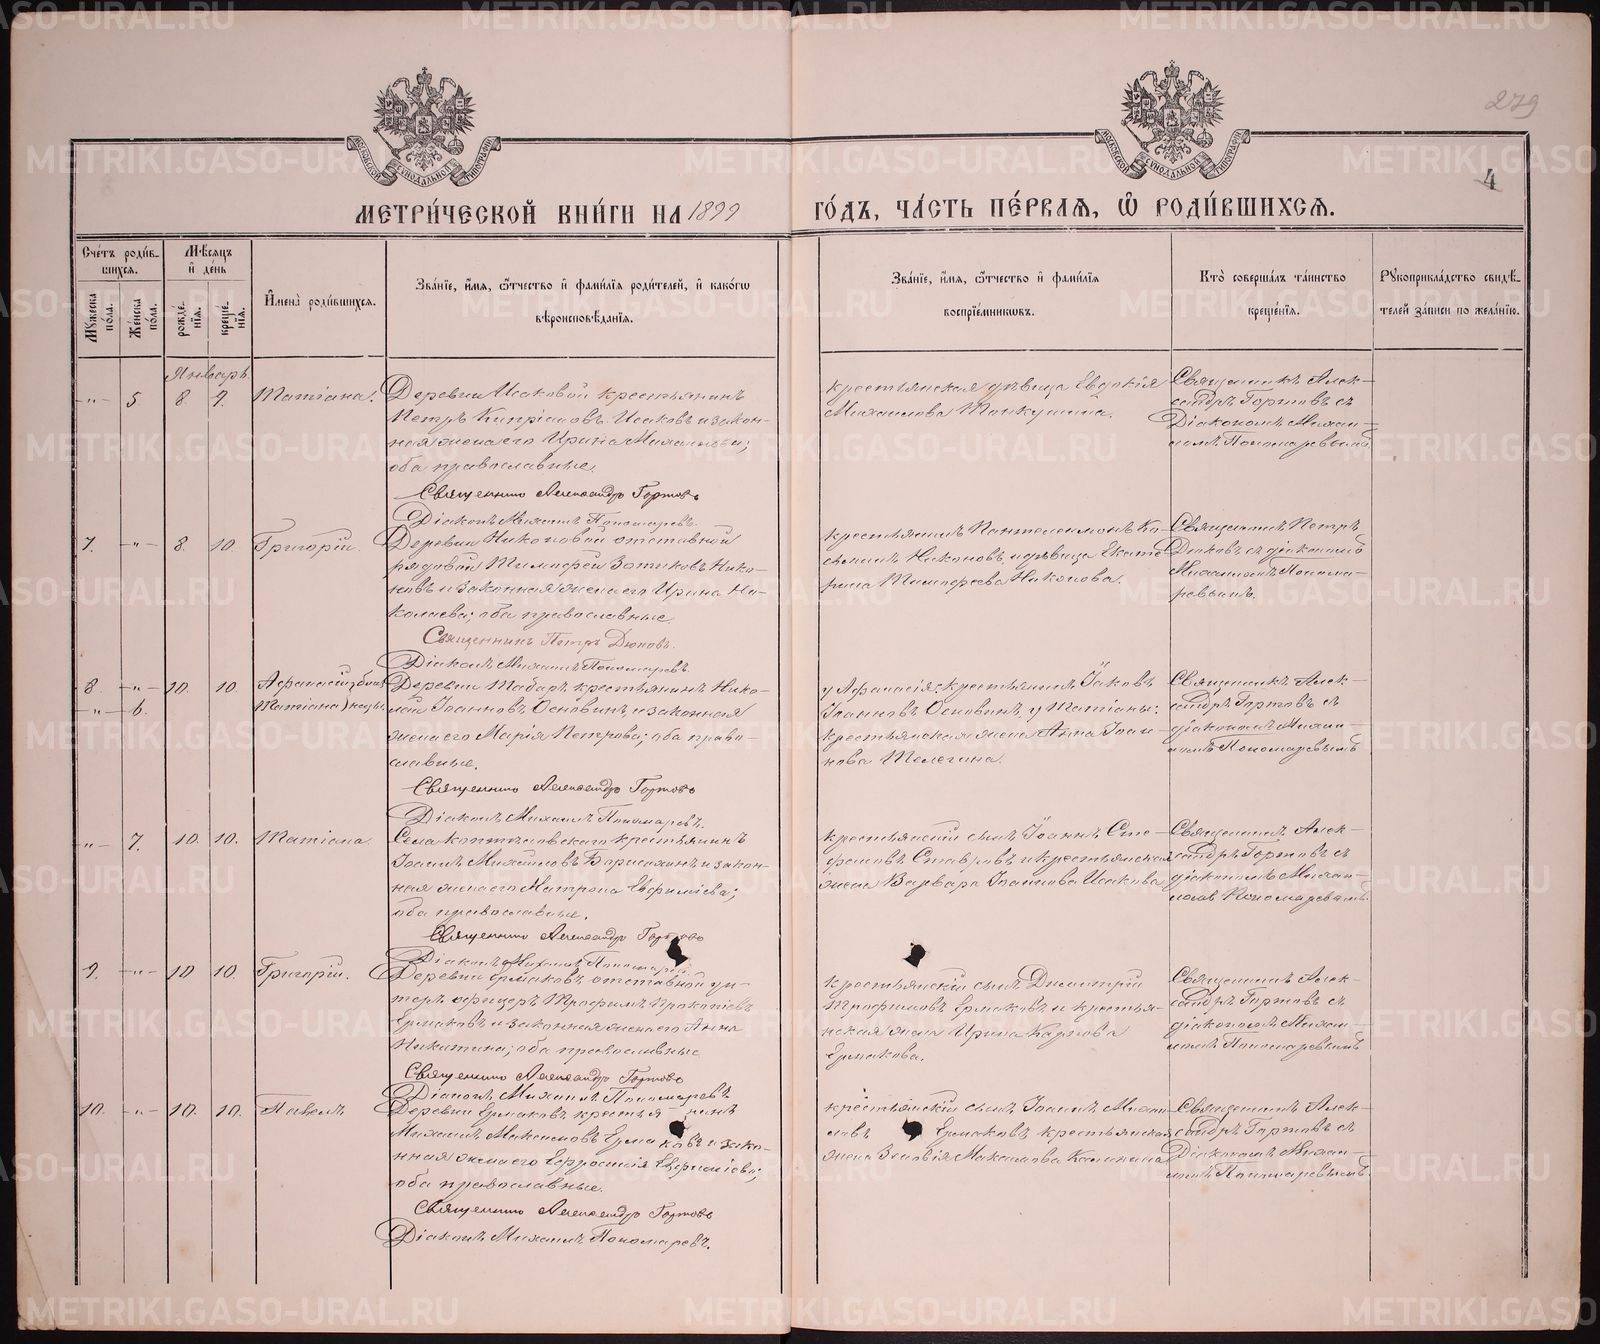 279
4
МОСКОВСКОЙ СѴНОДАЛЬНОЙ ТИПОГРАФІИ
МОСКОВСКОЙ СѴНОДАЛЬНОЙ ТИПОГРАФІИ
МЕТРИ́ЧЕСКОЙ КНИ́ГИ НА 1899
ГО́ДЪ, ЧА́СТЬ ПЕ́РВАЯ, Ѡ РОДИ́ВШИХСЯ.
Сче́тъ роди́вшихся.
Му́жеска по́ла.
Же́нска по́ла.
Мѣ́сяцъ и де́нь
рожде́нія.
креще́нія.
И́мена роди́вшихся.
Зва́нїе, и́мя, ѻ҆́тчество и фами́лїя роди́телей, и како́гѡ
вѣроисповѣ́данїя.
Зва́нїе, и́мя, ѻ҆́тчество и фами́лїя
воспрїе́мниковъ.
Кто̀ соверша́лъ та́инство
креще́нїя.
Рукоприкла́дство свидѣ́-
телей за́писи по жела́нїю.
Январь.
-"- 5 8. 9. Татіана.
Деревни Исаковой крестьянинъ
Петръ Кипріановъ Исаковъ и закон-
ная жена его Ирина Михаилова;
оба православные.
Священникъ Александръ Гортовъ
Діаконъ Михаилъ Пономаревъ.
крестьянская дѣвица Евдокія
Михаилова Тонкушина.
Священникъ Алек-
сандръ Гортовъ съ
Діакономъ Михаи-
ломъ Пономаревымъ
7. -"- 8. 10. Григорій.
Деревни Никоновой отставной
рядовой Тимофей Зотиковъ Нико-
новъ и законная жена его Ирина Ни-
колаева; оба православные
Священникъ Петръ Дюковъ.
Діаконъ Михаилъ Пономаревъ.
крестьянинъ Пантелеимонъ Ко-
Никоновъ и дѣвица Екате-
рина Тимофеева Никонова.
Священникъ Петръ
Дюковъ съ діакономъ
Михаиломъ Понома-
ревымъ.
8. -"- 10. 10. Афанасій близ
-"- 6. Татіана нецы.
Деревни Табаръ крестьянинъ Нико-
лай Іоанновъ Основинъ и законная
жена его Марія Петрова; оба право-
славные.
Священникъ Александръ Гортовъ
Діаконъ Михаилъ Пономаревъ.
у Афанасія: крестьянинъ Іаковъ
Іоанновъ Основинъ, у Татіаны:
крестьянская жена Анна Іоан-
нова Телегина.
Священникъ Алек-
сандръ Гортовъ съ
діакономъ Михаи-
ломъ Пономаревымъ
-"- 7. 10. 10. Татіана.
Села Коптѣловскаго крестьянинъ
Іоаннъ Михаиловъ и закон-
ная жена его Матрона Евфиміева;
оба православные.
Священникъ Александръ Гортовъ
Діаконъ Михаилъ Пономаревъ.
крестьянскій сынъ Іоаннъ Сте-
фановъ и крестьянская
жена Варвара Іоаннова Исакова
Священникъ Алек-
сандръ Гортовъ съ
діакономъ Михаи-
ломъ Пономаревымъ.
9. -"- 10 10. Григорій.
Деревни Ермаковъ отставной ун-
теръ офицеръ Трофимъ Прокопіевъ
Ермаковъ и законная жена его Анна
Никитина; оба православные
Священникъ Александръ Гортовъ
Діаконъ Михаилъ Пономаревъ
крестьянскій сынъ Димитрій
Трофимовъ Ермаковъ и крестья-
нская жена Ирина Карпова
Ермакова.
Священникъ Алек-
сандръ Гортовъ съ
діакономъ Михаи-
ломъ Пономаревымъ
10. -"- 10. 10. Павелъ
Деревни Ермаковъ крестьянинъ
Михаилъ Максимовъ Ермаковъ и зако-
нная жена его Ефросинія;
оба православные.
Священникъ Александръ Гортовъ
Діаконъ Михаилъ Пономаревъ.
крестьянскій сынъ Іоаннъ Михаи-
ловъ Ермаковъ, крестьянская
жена Зиновія Максимова Калинина
Священникъ Алек-
сандръ Гортовъ съ
Діакономъ Михаи-
ломъ Пономаревымъ.
METRIKI.GASO-URAL.RU